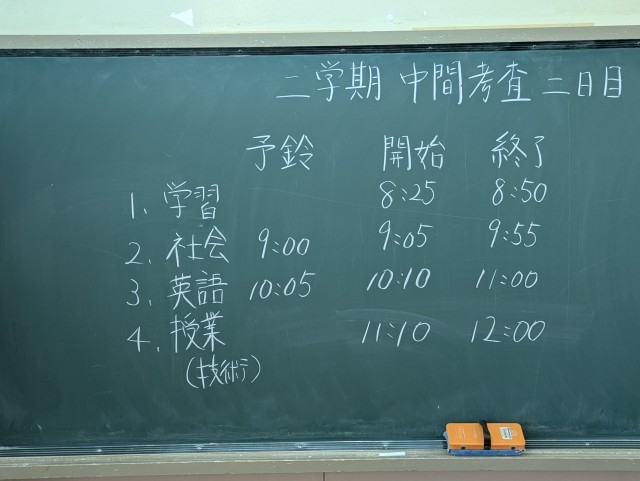 二学期 中間考査 二日目
予鈴 開始 終了
1. 学習 8:25 8:50
2. 社会 9:00 9:05 9:55
3. 英語 10:05 10:10 11:00
4. 授業 11:10 12:00
(技術)